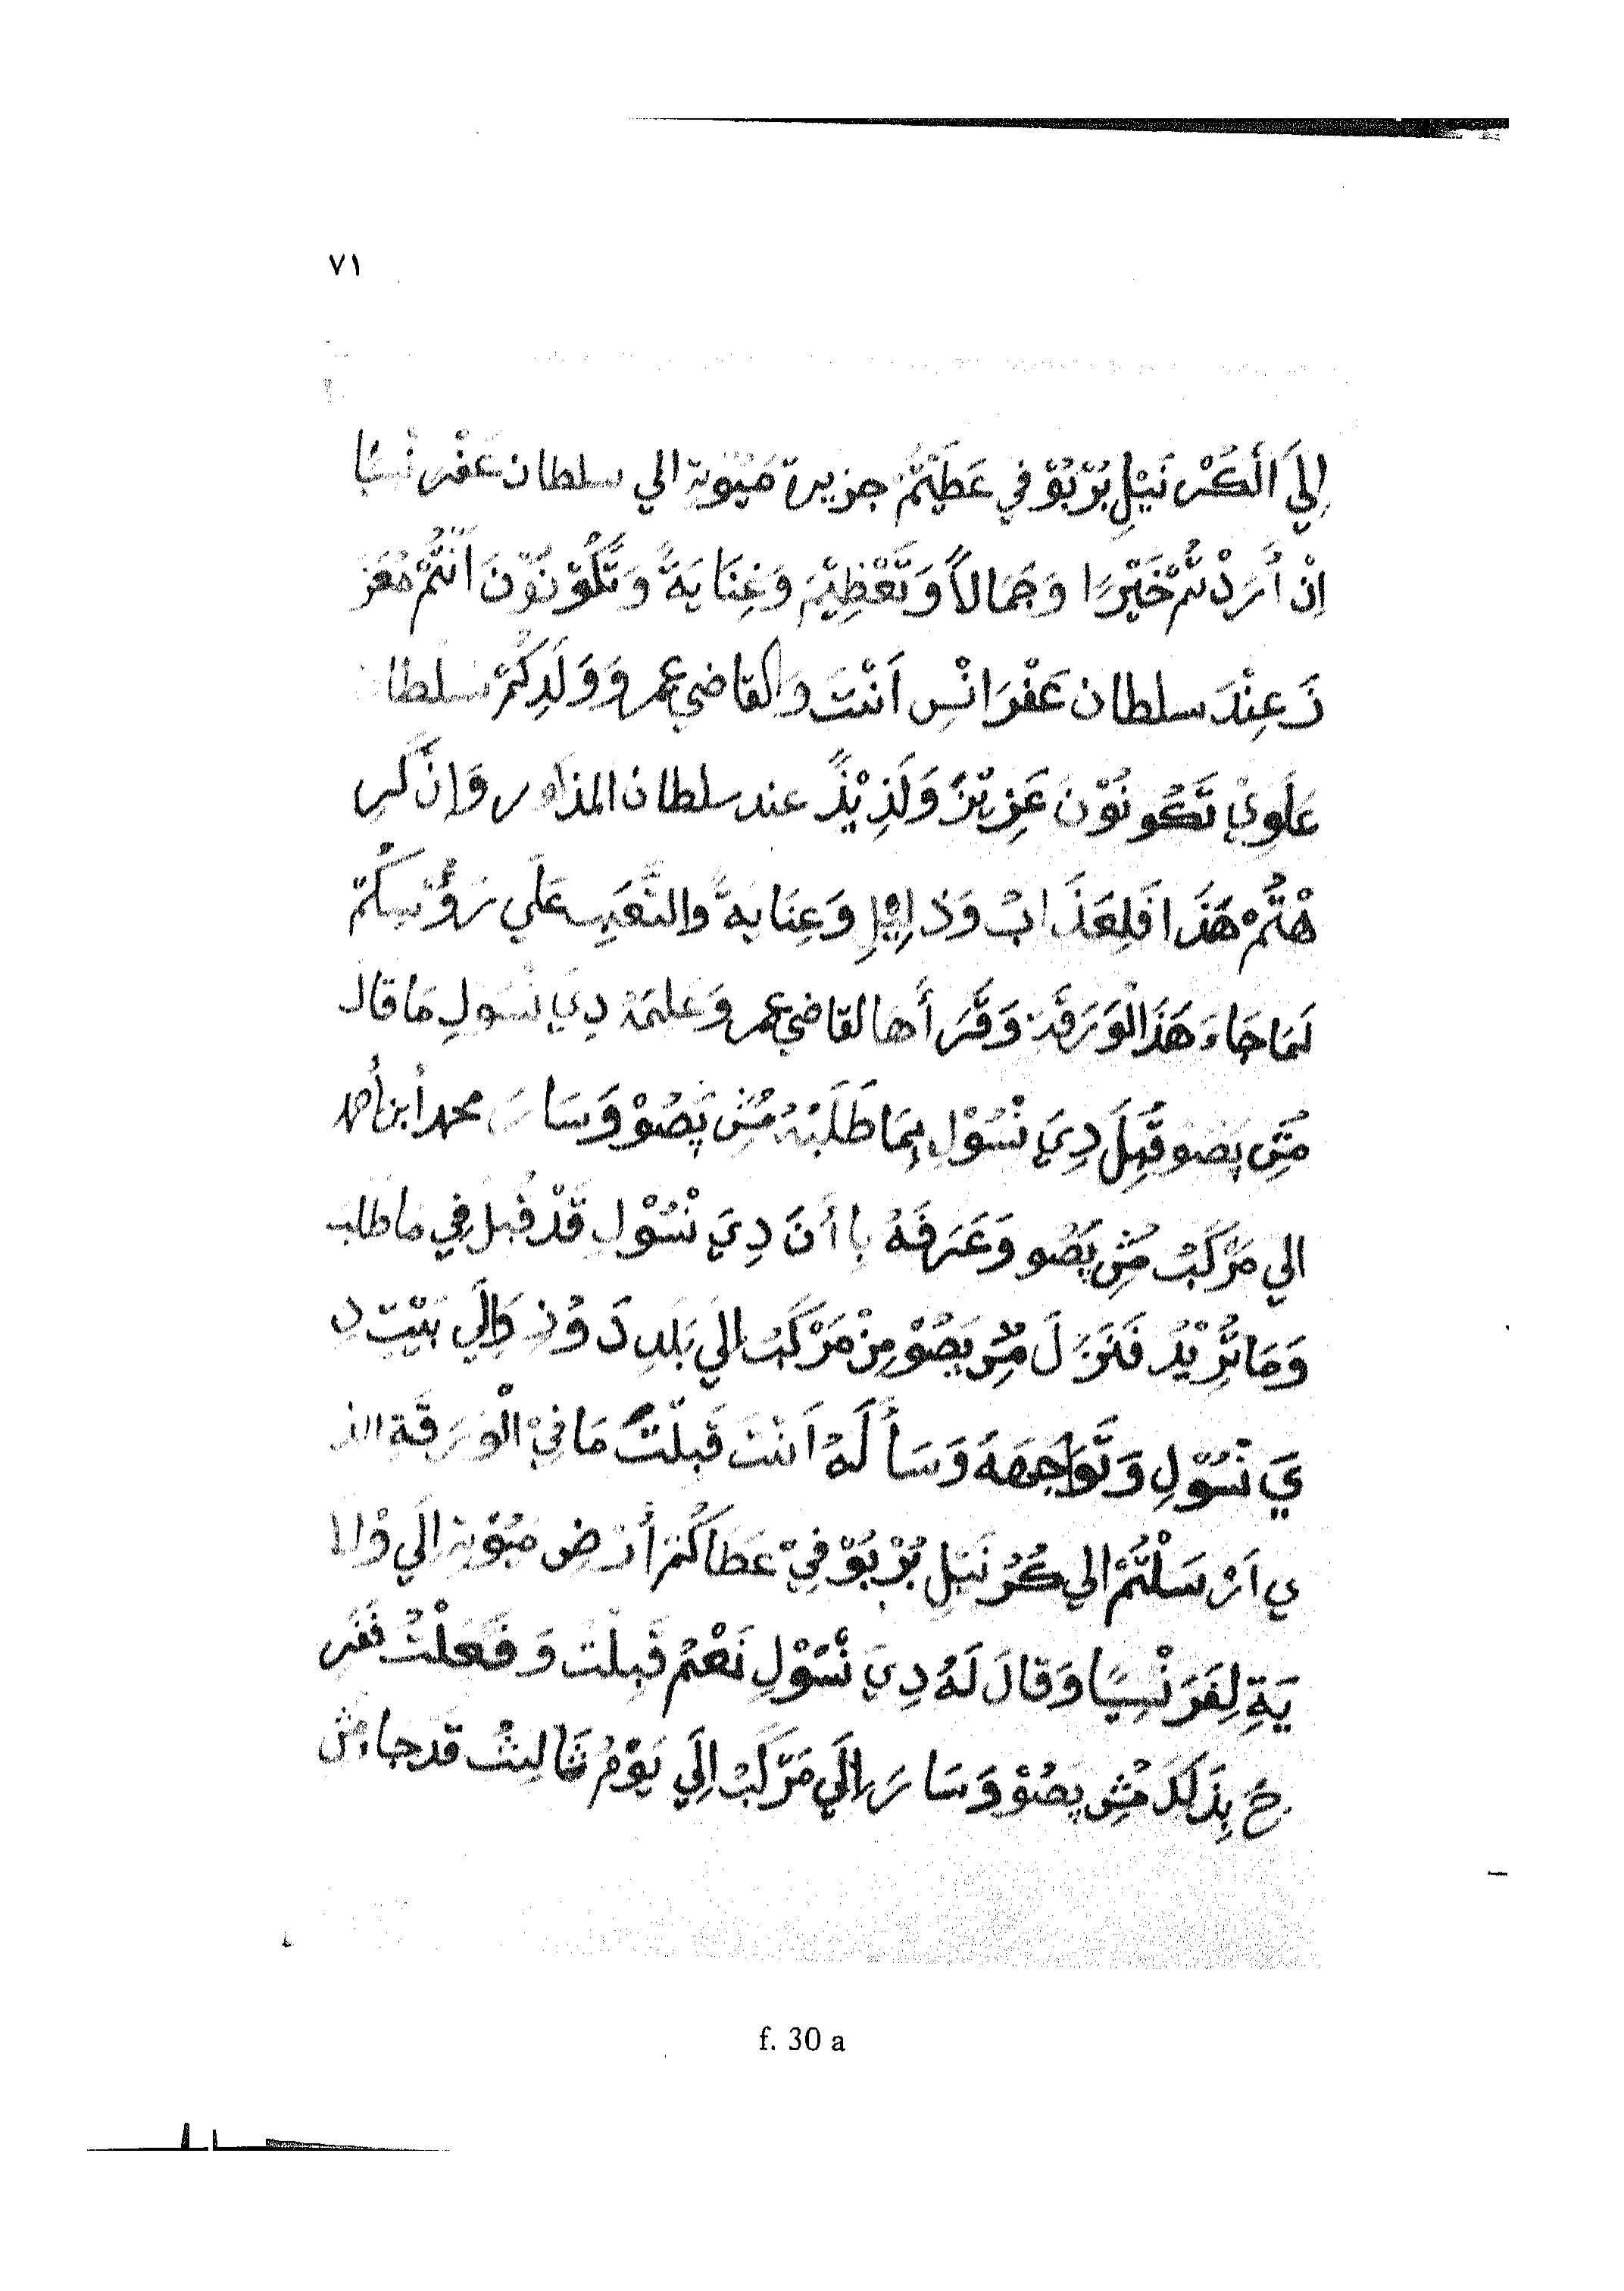 ٧١
إِلَي الْكُرْنَيْلِ بُرْبُوْ في عَطَيْتُمْ جزيرة مَيُوتة الي سلطان عَفْرنْسِيًا
اِنْ أَرَدْتُمْ خَيْرًا وَجَمَالاً وَتَعْظِيْمَ وَعِنَايَةً وَتَّكُوْنُوْنَ اَنْتُمْ مُعَز
زَ عِنْدَ سلطان عَفْرَانْسِ اَنْتَ وَالقاضي عمر وَوَلَدِكُمْ سلطان
عَلَوِيْ تَكُونُوْنَ عَزِيْزً وَلَذِيْذً عند سلطان المذكور وَإِنْ كَرِ
هْتُمْ هَذَا فَلِعَذَابْ وَذَلِيْلِ وَعِنَايَةً والتَّعَبِ عَلَي رَؤُسِكُمْ
لَمَا جَاءَ هَذَ الْوَرَقَة وَقَرَأَها القاضي عمر وَعلمَهُ دِيَ نْسُولِ مَا قال
مُشِ پَصُو قَبِلَ دِيَ نْسُوْلِ بِمَا طَلَبَهُ مُشِ پَصُوْ وَسَارَ محمد أبن أحمد
الي مَرْكَبْ مُشِ پَصُو وَعَرَفَهُ بِا أَنَ دِيَ نْسُوْلِ قَدْ قُبل في ما طلب
وَمَا تُرِيْدُ فَنَزَلَ مُشِ پَصُوْ مِنْ مَرْكَبْ الي بَلَدِ دَوُنِ وَالَي بَيْتِ دِ
يَ نْسُوْلِ وَتَّوَاجَهَهَ وَسَأَلَهُ اَنْتَ قَبِلْتَ مَا فِيْ الْوَرَقَةِ الذ
ي اَرْسَلْتُمْ الي كُرُنَيْلِ بُرْبُوْ فِيْ عَطَاكُمْ أَرْضِ مَيُوْتة الَي وْالا
يَةِ لِفَرَنْسِيًا وَقالَ لَهُ دِيَ نْسُوْلِ نَعْمْ قَبِلْتَ وَفَعَلْتُ فَفَرِ
حَ بِذَلَكَ مُشِ پَصُوْ وَسَارَ إِلَي مَرْكَبْ اِلَي يَوْمُ ثَالِثْ قَدْ جاء مُش
f. 30 a